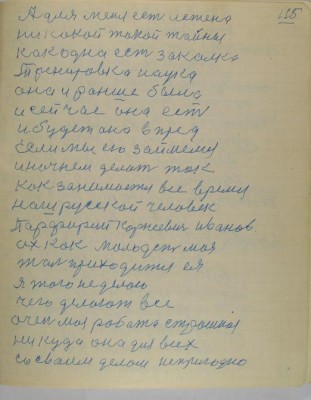 115
А для меня ест истено
никокой токой тайны
как одна ест закалка
Тренировка наука
она и ранше была
и сейчас она ест
и будет она вперед
Если мы ею займемся
и начнем делат так
как занимается все время
наш русской человек
Парфирий Корнеевич Иванов.
ох как молодст моя
так приходится ей
я этого не делаю
чего делают все
очен моя работа страшная
никуда она для всех
со своем делом непригодно